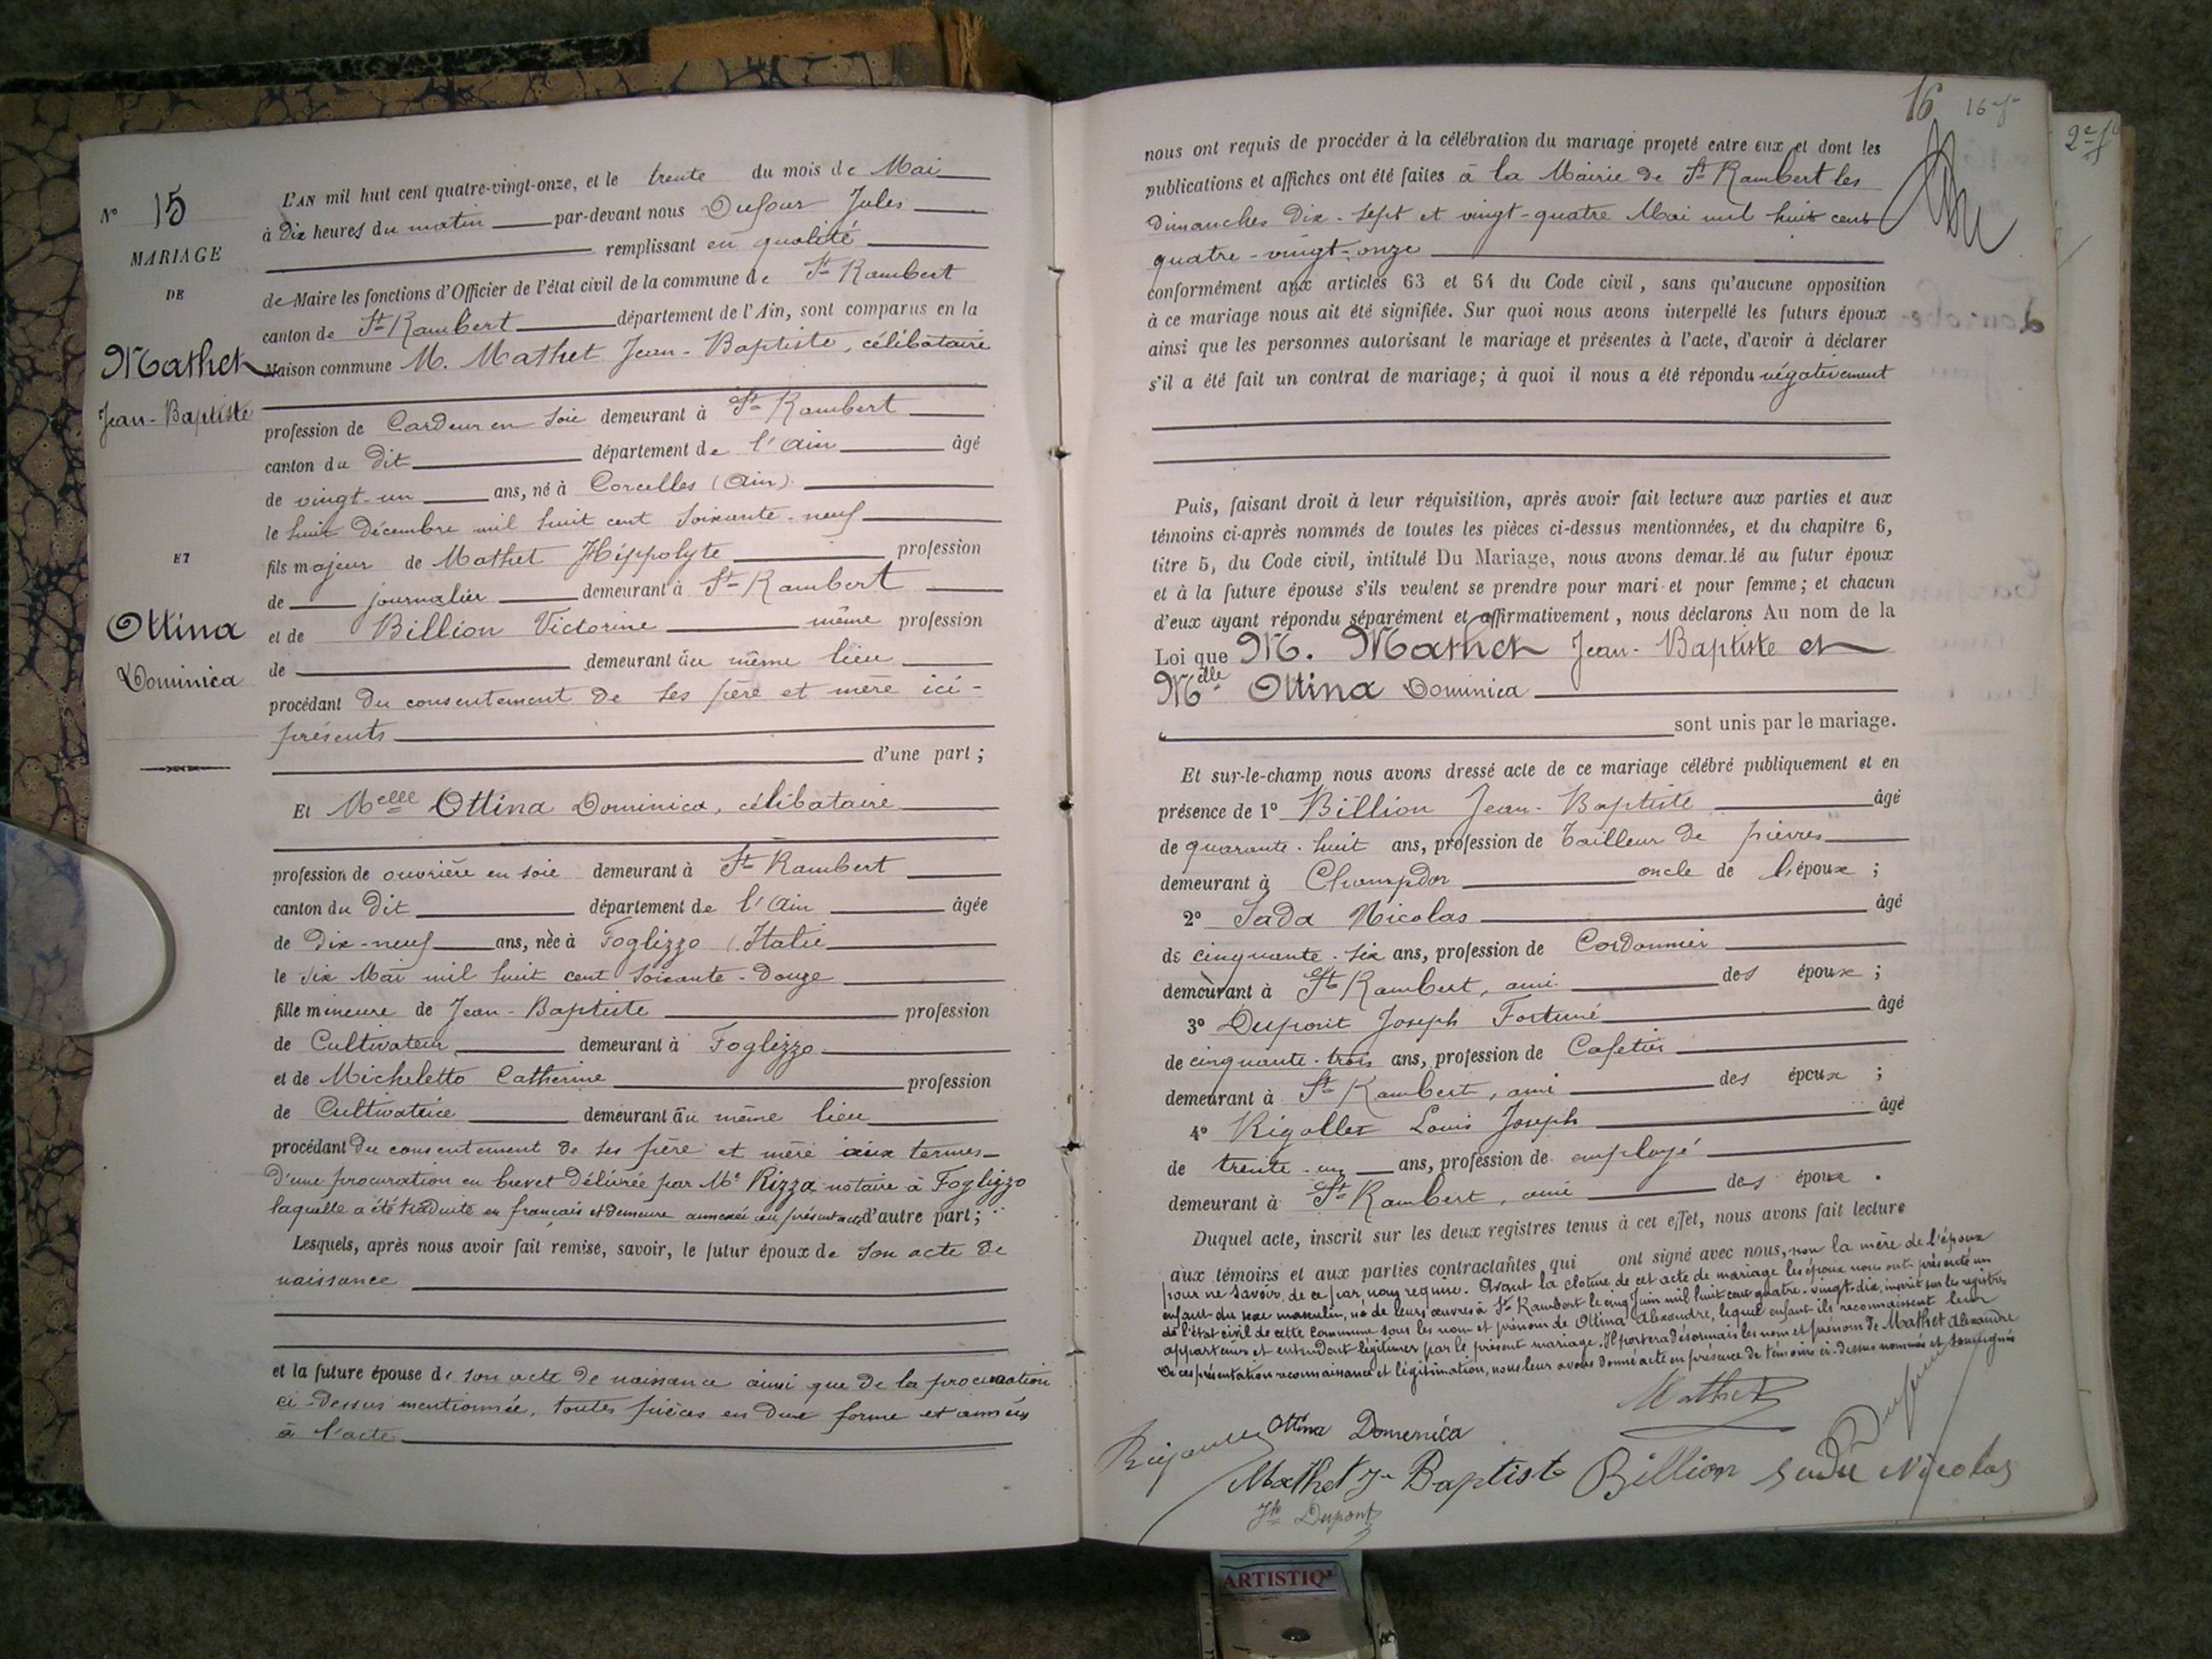 N° 15
MARIAGE
DE
Mathet
Jean-Baptiste
ET
Ottina
Dominica
L'AN mil huit cent quatre-vingt-onze, et le trente du mois de Mai
à Dix heures du matin par-devant nous Dufour Jules
remplissant en qualité
de Maire les fonctions d'Officier de l'état civil de la commune de St Rambert
canton de St Rambert département de l'Ain, sont comparus en la
Maison commune M. Mathet Jean-Baptiste, célibataire
profession de Cardeur en soie demeurant à St Rambert
canton du dit département de l'Ain âgé
de vingt-un ans, né à Corcelles (Ain)
le huit décembre mil huit cent soixante-neuf
fils majeur de Mathet Hippolyte profession
de journalier demeurant à St Rambert
et de Billion Victorine même profession
de demeurant au même lieu
procédant du consentement de ses père et mère ici-
présents
d'une part ;
Et Melle Ottina Dominica, célibataire
profession de ouvrière en soie demeurant à St Rambert
canton du dit département de l'Ain âgée
de dix-neuf ans, née à Foglizzo (Italie
le six Mai mil huit cent soixante-douze
fille mineure de Jean-Baptiste profession
de Cultivateur demeurant à Foglizzo
et de Micheletto Catherine profession
de Cultivatrice demeurant au même lieu
procédant du consentement de ses père et mère aux termes
d'une procuration en brevet délivrée par Me Rizza notaire à Foglizzo
laquelle a été traduite en français et demeure annexée au présent acte d'autre part ;
Lesquels, après nous avoir fait remise, savoir, le futur époux de son acte de
naissance
et la future épouse de son acte de naissance ainsi que de la procuration
ci-dessus mentionnée, toutes pièces en due forme et annexées
à l'acte
16 16 f
2e f
nous ont requis de procéder à la célébration du mariage projeté entre eux et dont les
publications et affiches ont été faites à la Mairie de St Rambert les
dimanches dix-sept et vingt-quatre Mai mil huit cent
quatre-vingt-onze
conformément aux articles 63 et 64 du Code civil, sans qu'aucune opposition
à ce mariage nous ait été signifiée. Sur quoi nous avons interpellé les futurs époux
ainsi que les personnes autorisant le mariage et présentes à l'acte, d'avoir à déclarer
s'il a été fait un contrat de mariage ; à quoi il nous a été répondu négativement
Puis, faisant droit à leur réquisition, après avoir fait lecture aux parties et aux
témoins ci-après nommés de toutes les pièces ci-dessus mentionnées, et du chapitre 6,
titre 5, du Code civil, intitulé Du Mariage, nous avons demandé au futur époux
et à la future épouse s'ils veulent se prendre pour mari et pour femme ; et chacun
d'eux ayant répondu séparément et affirmativement, nous déclarons Au nom de la
Loi que M. Mathet Jean-Baptiste et
Melle Ottina Dominica
sont unis par le mariage.
Et sur-le-champ nous avons dressé acte de ce mariage célébré publiquement et en
présence de 1° Billion Jean-Baptiste âgé
de quarante-huit ans, profession de Tailleur de pierres
demeurant à Champdor oncle de l'époux ;
2° Sada Nicolas âgé
de cinquante-six ans, profession de Cordonnier
demeurant à St Rambert, ami des époux ;
3° Dupont Joseph Fortuné âgé
de cinquante-trois ans, profession de Cafetier
demeurant à St Rambert, ami des époux ;
4° Rigollet Louis Joseph âgé
de trente-un ans, profession de employé
demeurant à St Rambert, ami des époux.
Duquel acte, inscrit sur les deux registres tenus à cet effet, nous avons fait lecture
aux témoins et aux parties contractantes qui ont signé avec nous, non la mère de l'époux
pour ne savoir, de ce par nous requise. Avant la cloture de cet acte de mariage les époux nous ont présenté un
enfant du sexe masculin, né de leurs œuvres à St Rambert le cinq Juin mil huit cent quatre-vingt-dix, inscrit sur les registres
de l'état civil de cette Commune sous les nom et prénom de Ottina Alexandre, lequel enfant ils reconnaissent leur
appartenir et entendent légitimer par le présent mariage. Il portera désormais les nom et prénom de Mathet Alexandre
De ces présentation reconnaissance et légitimation, nous leur avons donné acte en présence de témoins ci-dessus nommés et soussignés
Mathet
Dufour
Ottina Domenica
Mathet Jn Baptiste Billion Sada Nicolas
Jh Dupont
ARTISTIQ